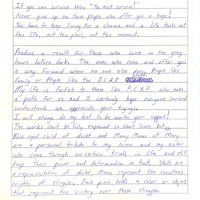 IF you can survive know "You must survive!"
Never give up on those people who offer you a hope!
You have to keep living for a chance, and a life that's not
this life, not this place, not this moment.
Produce a result for those who come in the grey
hours before dark. The ones who come and offer you
a way forward when no one else does. People like
family or People like the P.C.A.P.
My life is forfeit to those like P.C.A.P. who make
a path for us and I certainly hope everyone involved
understands we appreciate your trying.
I will always do my best to be worth your support!
The works can't be fully explained in short lines but,
Blue eyed child of doubt and Many Moons of Many
are a personal tribute to my Niece and my sister
who came through uncertain trials in life and did
trip their power and determination in tact. Those are
a representation of doubt. Moons represent the countless
nights of struggle. Each piece holds a color or object
that represent the victory over those struggles.